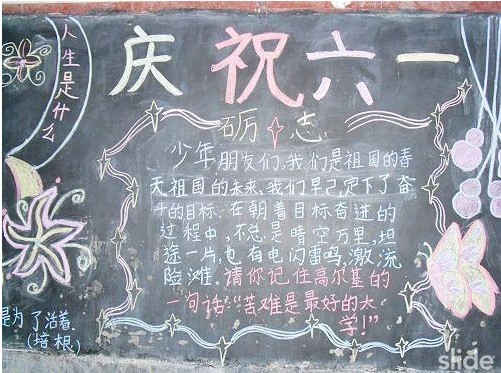 人生是什么
庆祝六一
砺志
少年朋友们,我们是祖国的春
天祖国的未来,我们早已定下了奋
斗的目标.在朝着目标奋进的
过程中,不总是晴空万里,坦
途一片,也有电闪雷鸣,激流
险滩.请你记住高尔基的
一句话:"苦难是最好的大
学!"
是为了活着.
(培根)
slide